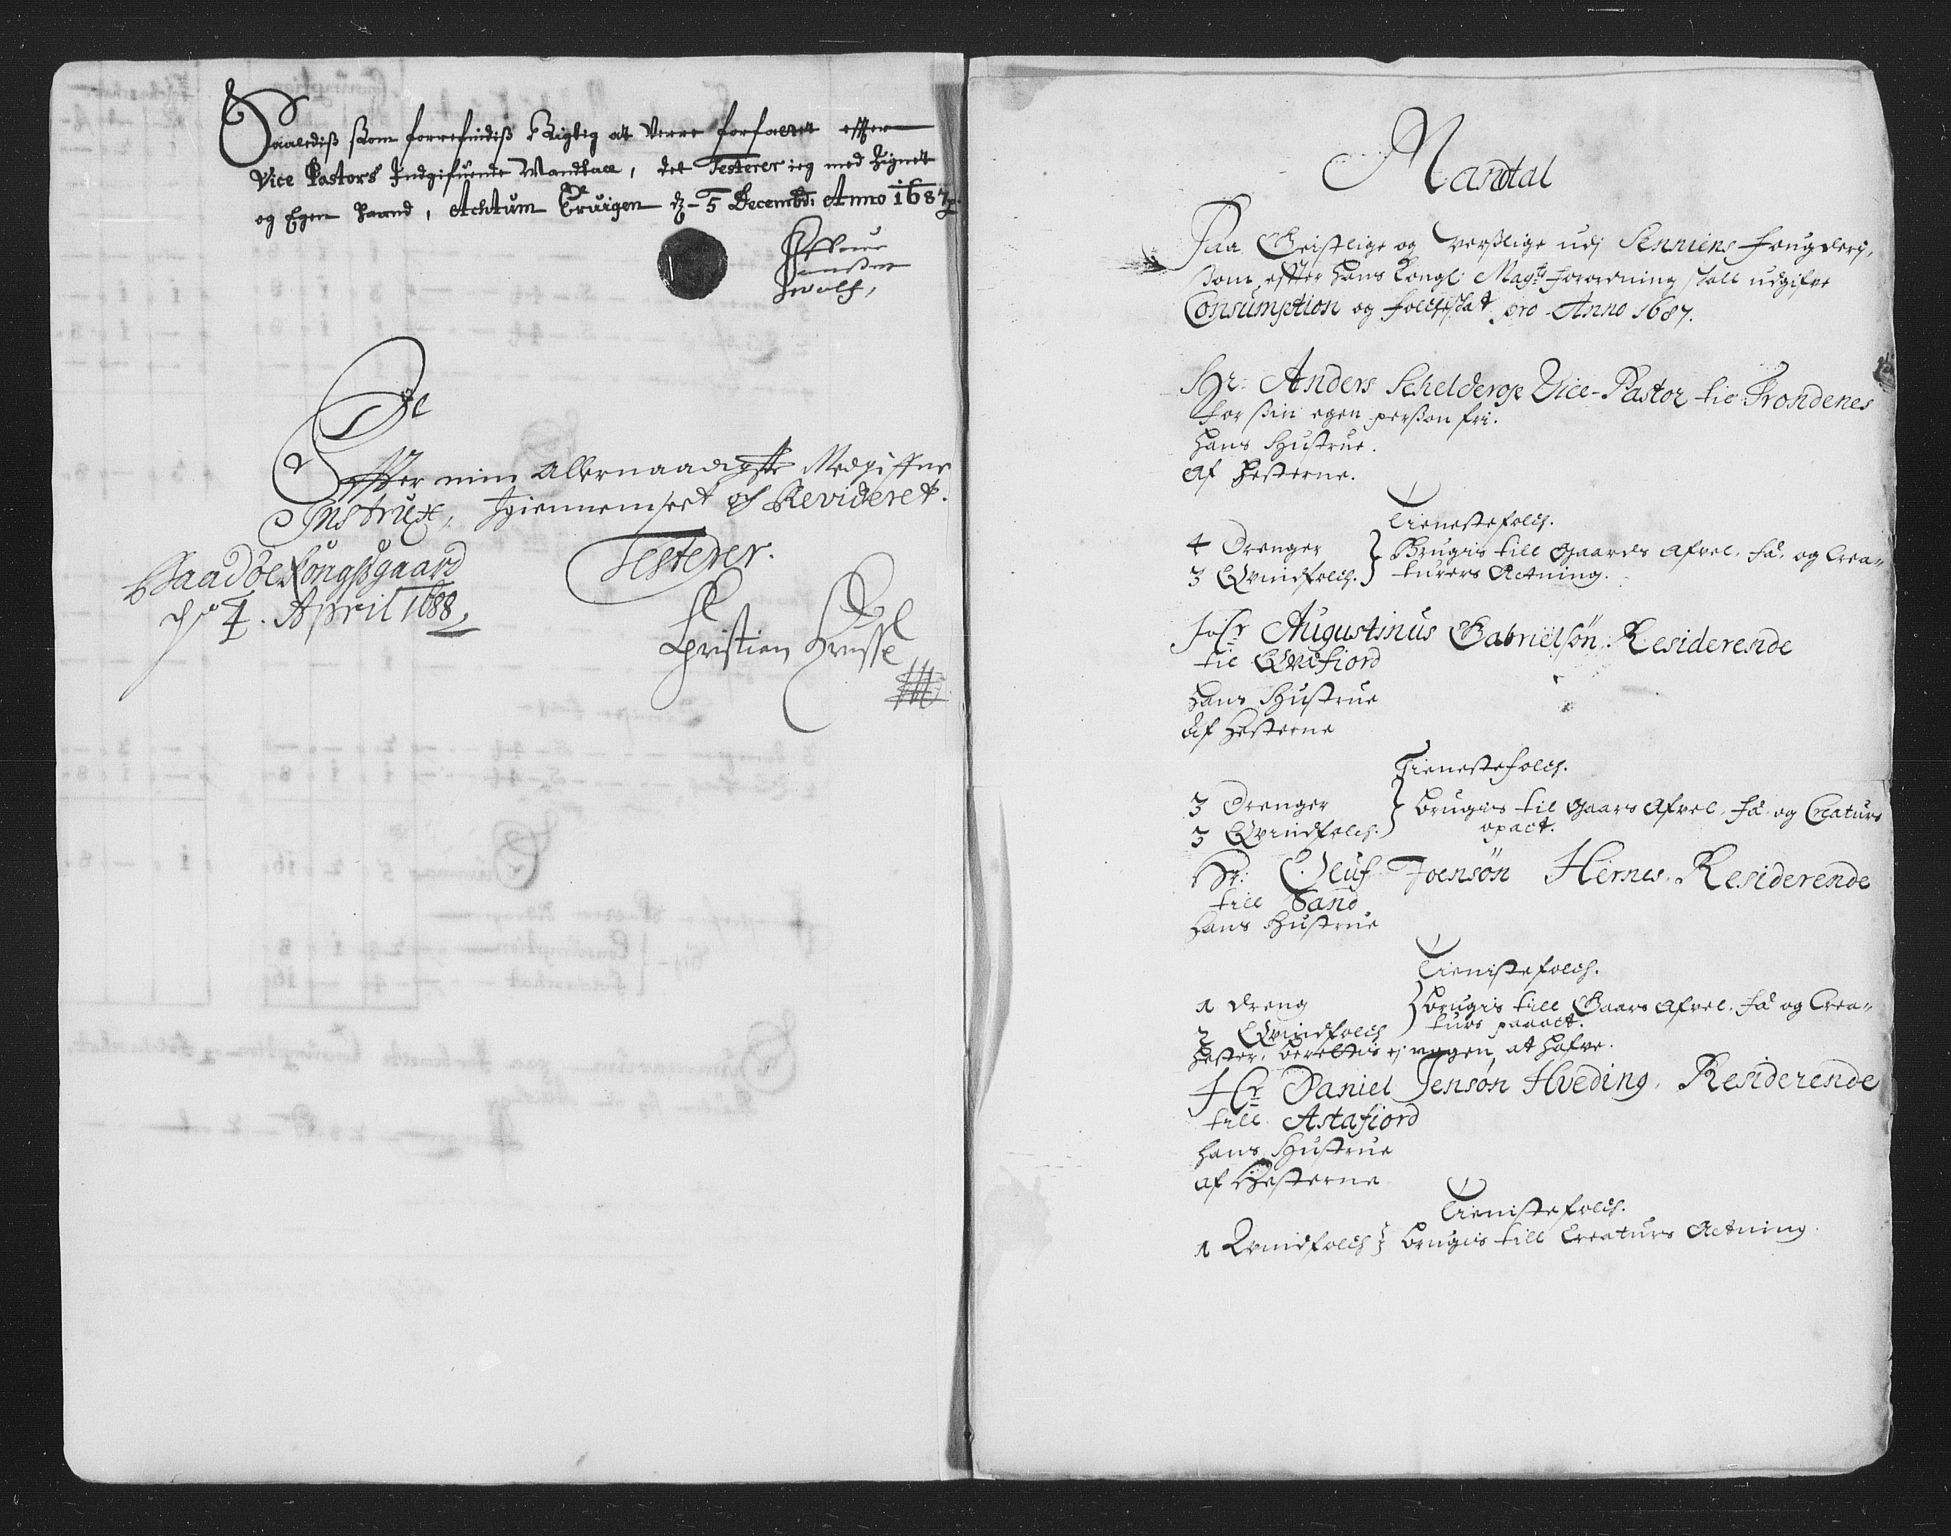 Saalediß ßom forrefindiß Rigtig at Verre forfattet effter
Vice Pastors Indgifuende Mandtall, det Testerer ieg med Zignet
og Egen Haand, Achtum Truigen d. 5 Decembr: Anno 1687
Wolf,
Effter min allernaadigste Medgiffne
Instrux, Igiennemseet och Revideret.
Testerer.
Baadøe Kongßgaard
d. 4. April 1688,
Christian
Mandtal
Paa Geistlige og verßlige udj Senniens fougderj,
som effter hans kongl: Mayts forordning skall udgifve
Consumption og folcheskat pro Anno 1687.
Hr: Anders Schelderop Vice-Pastor til Trondenes
for ßin egen perßon fri.
hans Hustrue.
Af Hesterne.
Tienestefolch.
4 Drenger } Brugis till Gaards Afvel. fæ. og Crea-
3 Qvindfolch. } turers Actning.
Hr Augustinus Gabrielsøn. Residerende
til Qvefiord
hans Hustrue
Af Hesterne
Tienestefolch.
3 Drenger } brugis til Gaars Afvel. fæ og Creaturs
3 Qvindfolch. } opact.
Hr: Oluf Joensøn Hernes. Residerende
till Sand
hans Hustrue
Tienistefolch.
1 dreng } brugis till Gaars Afvel. fæ og Crea-
2 Qvindfolch } turs paaact.
Hester, berettis ej nogen at hafve.
Hr Daniel Jensøn Hveding. Residerende
till Astafiord
hans Hustrue
af Hesterne
Tienistefolch.
1 Qvindfolch } brugis till Creaturs Actning.